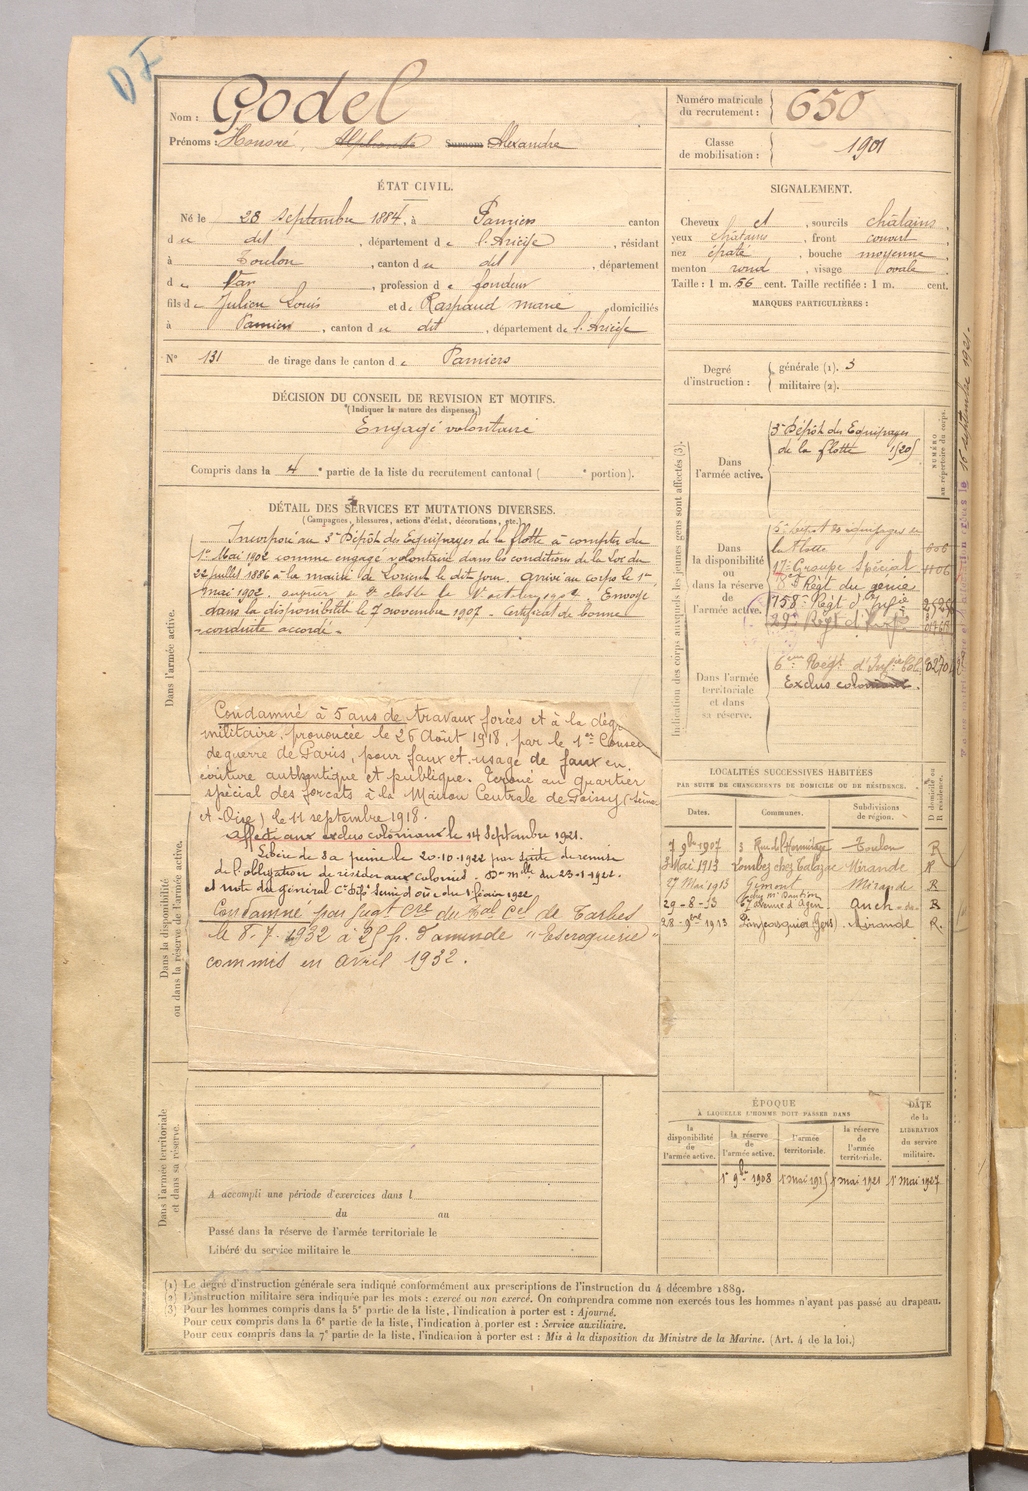 DF
Nom : Godel
Prénoms : Honoré, Alphonse Surnom Alexandre
Numéro matricule du recrutement : 650
Classe de mobilisation : 1901
ÉTAT CIVIL.
Né le 28 septembre 1884, à Pamiers canton
du dit, département de l'Ariège, résidant
à Toulon, canton du dit, département
d Var, profession de fondeur
fils de Julien Louis et de Raspaud marie domiciliés
à Pamiers, canton du dit, département de l'Ariège
N° 131 de tirage dans le canton de Pamiers
SIGNALEMENT.
Cheveux et, sourcils châtains,
yeux châtains, front couvert,
nez épaté, bouche moyenne,
menton rond, visage ovale
Taille : 1 m. 56 cent. Taille rectifiée : 1 m. cent.
MARQUES PARTICULIÈRES :
Degré d'instruction : générale (1). 3
militaire (2).
DÉCISION DU CONSEIL DE REVISION ET MOTIFS.
(Indiquer la nature des dispenses.)
Engagé volontaire
Compris dans la 4e partie de la liste du recrutement cantonal ( e portion).
DÉTAIL DES SERVICES ET MUTATIONS DIVERSES.
(Campagnes, blessures, actions d'éclat, décorations, etc.)
Dans l'armée active.
Incorporé au 3e Dépôt des Equipages de la flotte à compter du
1er Mai 1902 comme engagé volontaire dans les conditions de la Loi du
22 juillet 1886 à la mairie de Lorient le dit jour. Arrivé au corps le 1er
mai 1902. Envoyé
dans la disponibilité le 7 novembre 1907. Certificat de bonne
conduite accordé.
Condamné à 5 ans de travaux forcés et à la dég
militaire, prononcée le 26 Août 1918, par le 1er Conseil
de guerre de Paris, pour faux et usage de faux en
écriture authentique et publique. Ecroué au quartier
spécial des forçats à la Maison Centrale de Poissy (Seine
et Oise) le 11 septembre 1918.
Affecté aux exclus coloniaux le 14 Septembre 1921.
Libéré de sa peine le 20-10-1922 par suite de remise
de l'obligation de résider aux colonies. Don mlle du 23-1-1922.
et note du Général Ct Dépt Seine et Oise du 1 février 1922
Condamné par jugt Cre du Tal Cel de Tarbes
le 8.7.1932 à 25 f. d'amende "Escroquerie"
commis en avril 1932.
Dans la disponibilité ou dans la réserve de l'armée active.
Dans l'armée territoriale et dans sa réserve.
A accompli une période d'exercices dans l
du au
Passé dans la réserve de l'armée territoriale le
Libéré du service militaire le
Indication des corps auxquels les jeunes gens sont affectés (3).
NUMÉRO au répertoire du corps.
Dans l'armée active.
3e Dépôt des Equipages
de la flotte 1520
Dans la disponibilité ou dans la réserve de l'armée active.
5e Dépôt des équipages de
la flotte
17e Groupe Spécial
8e Régt du génie
158e Régt d'Infie
29e Régt d'Inf
Dans l'armée territoriale et dans sa réserve.
6eme Régt d'Infie Cole
Exclus coloniaux.
LOCALITÉS SUCCESSIVES HABITÉES
PAR SUITE DE CHANGEMENTS DE DOMICILE OU DE RÉSIDENCE.
Dates. Communes. Subdivisions de région. D domicile ou R résidence.
7 9bre 1907 3 Rue de l'Hermitage Toulon R
3 Mai 1913 Lombez chez Talazac Mirande R
27 Mai 1913 Gimont Mirande R
29-8-13 67 avenue d'Agen Auch R
28-9bre 1913 (Gers) Mirande R.
ÉPOQUE
À LAQUELLE L'HOMME DOIT PASSER DANS
la disponibilité de l'armée active. la réserve de l'armée active. l'armée territoriale. la réserve de l'armée territoriale. DATE de la LIBÉRATION du service militaire.
1er 9bre 1908 1 mai 1915 1 mai 1921 1er mai 1927
(1) Le degré d'instruction générale sera indiqué conformément aux prescriptions de l'instruction du 4 décembre 1889.
(2) L'instruction militaire sera indiquée par les mots : exercé ou non exercé. On comprendra comme non exercés tous les hommes n'ayant pas passé au drapeau.
(3) Pour les hommes compris dans la 5e partie de la liste, l'indication à porter est : Ajourné.
Pour ceux compris dans la 6e partie de la liste, l'indication à porter est : Service auxiliaire.
Pour ceux compris dans la 7e partie de la liste, l'indication à porter est : Mis à la disposition du Ministre de la Marine. (Art. 4 de la loi.)